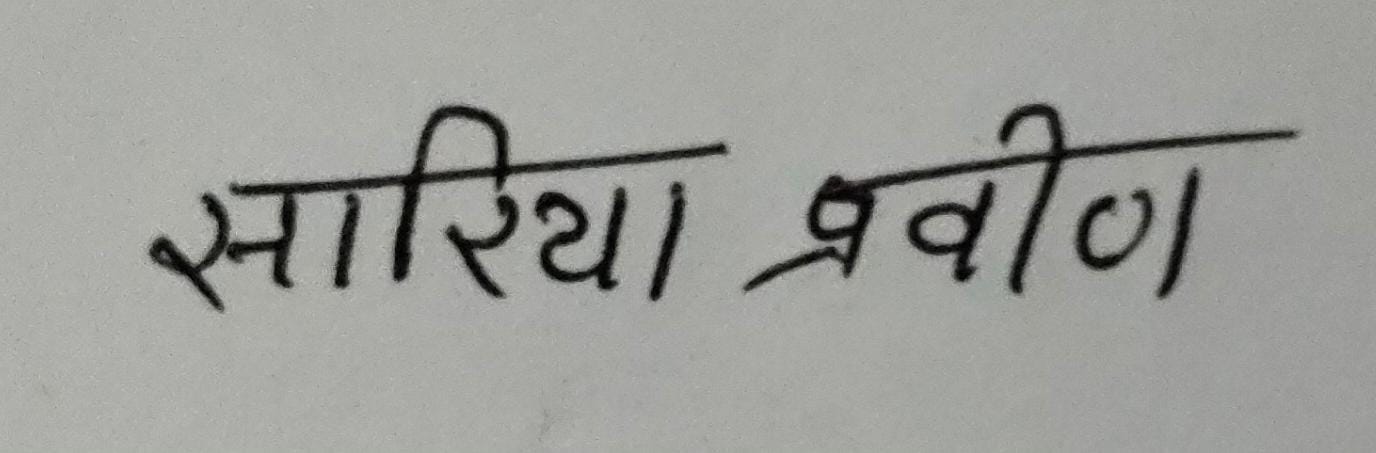 सारिया प्रवीण